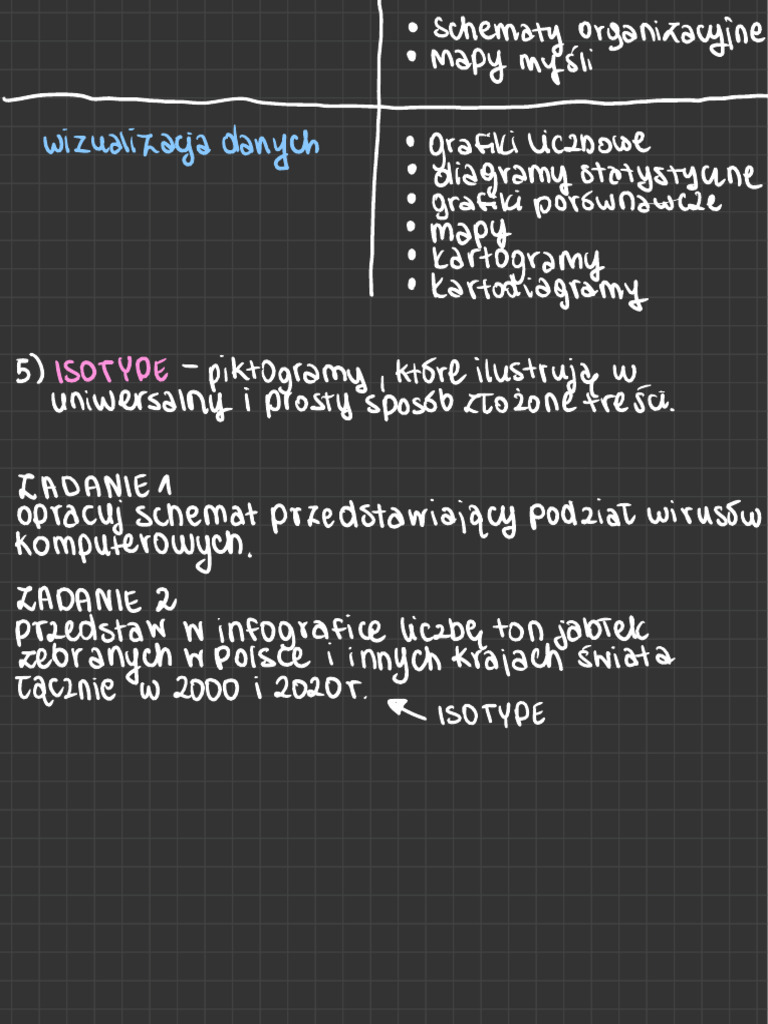 • schematy organizacyjne
• mapy myśli
wizualizacja danych
• grafiki liczbowe
• diagramy statystyczne
• grafiki porównawcze
• mapy
• kartogramy
• kartodiagramy
5) ISOTYPE – piktogramy, które ilustrują w
uniwersalny i prosty sposób złożone treści.
ZADANIE 1
opracuj schemat przedstawiający podział wirusów
komputerowych.
ZADANIE 2
przedstaw w infografice liczbę ton jabłek
zebranych w Polsce i innych krajach świata
łącznie w 2000 i 2020 r.
ISOTYPE